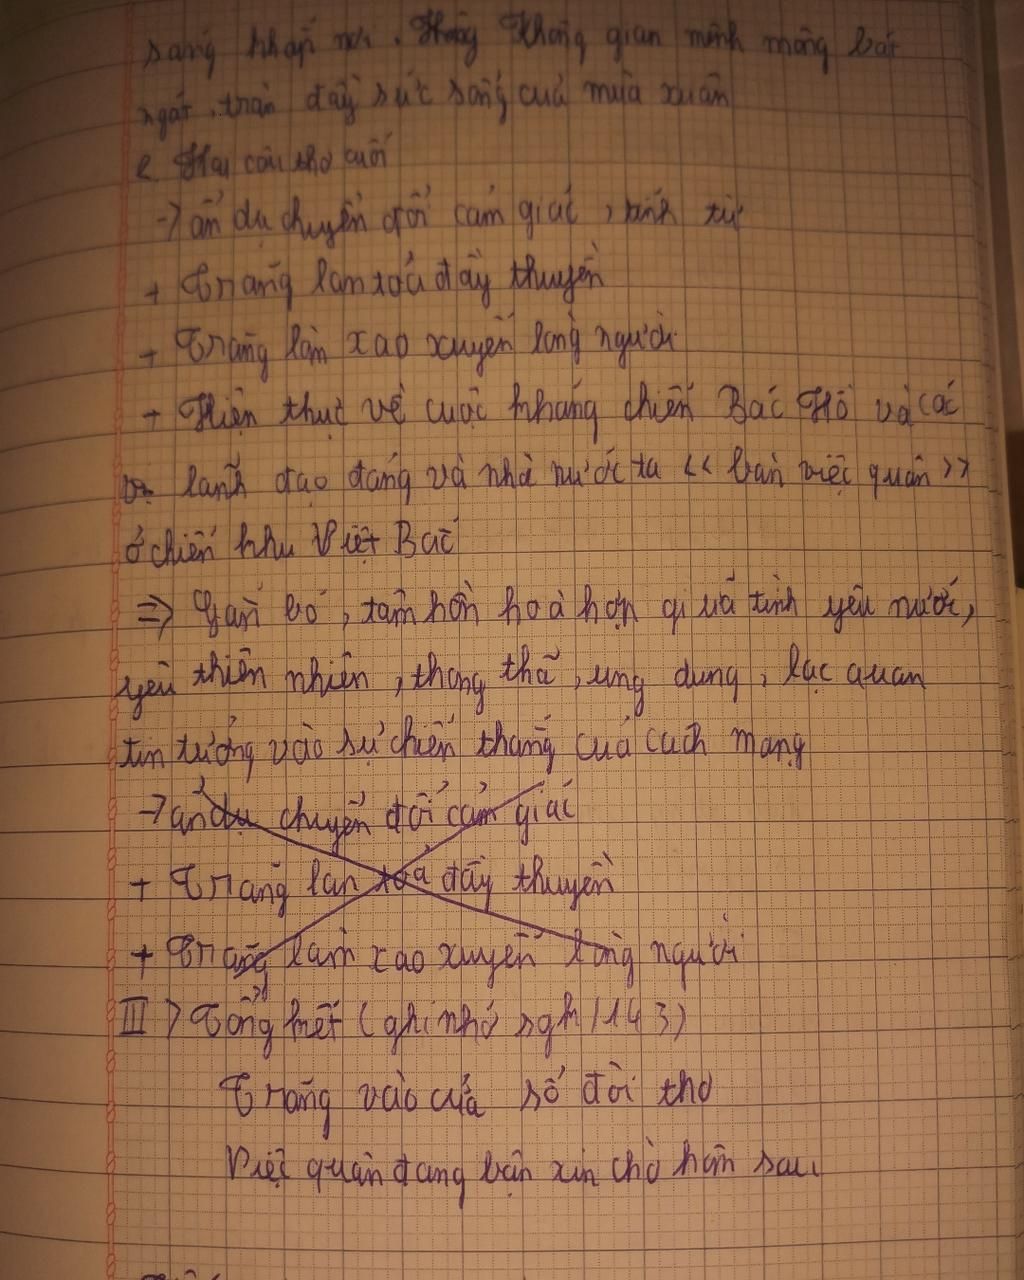 sáng khắp nơi. Không gian mênh mông bát
ngát, tràn đầy sức sống của mùa xuân
2. Hai câu thơ cuối
-> ẩn dụ chuyển đổi cảm giác, tính từ
+ Trăng lan toả đầy thuyền
+ Trăng làm xao xuyến lòng người
+ Hiện thực về cuộc kháng chiến Bác Hồ và các
lãnh đạo đảng và nhà nước ta << bàn việc quân >>
ở chiến khu Việt Bắc
=> Gắn bó, tâm hồn hoà hợp giữa tình yêu nước,
yêu thiên nhiên, thong thả, ung dung, lạc quan
tin tưởng vào sự chiến thắng của cách mạng
-> ẩn dụ chuyển đổi cảm giác
+ Trăng lan toả đầy thuyền
+ Trăng làm xao xuyến lòng người
III > Tổng kết (ghi nhớ sgk/143)
Trăng vào cửa sổ đòi thơ
Việc quân đang bận xin chờ hôm sau